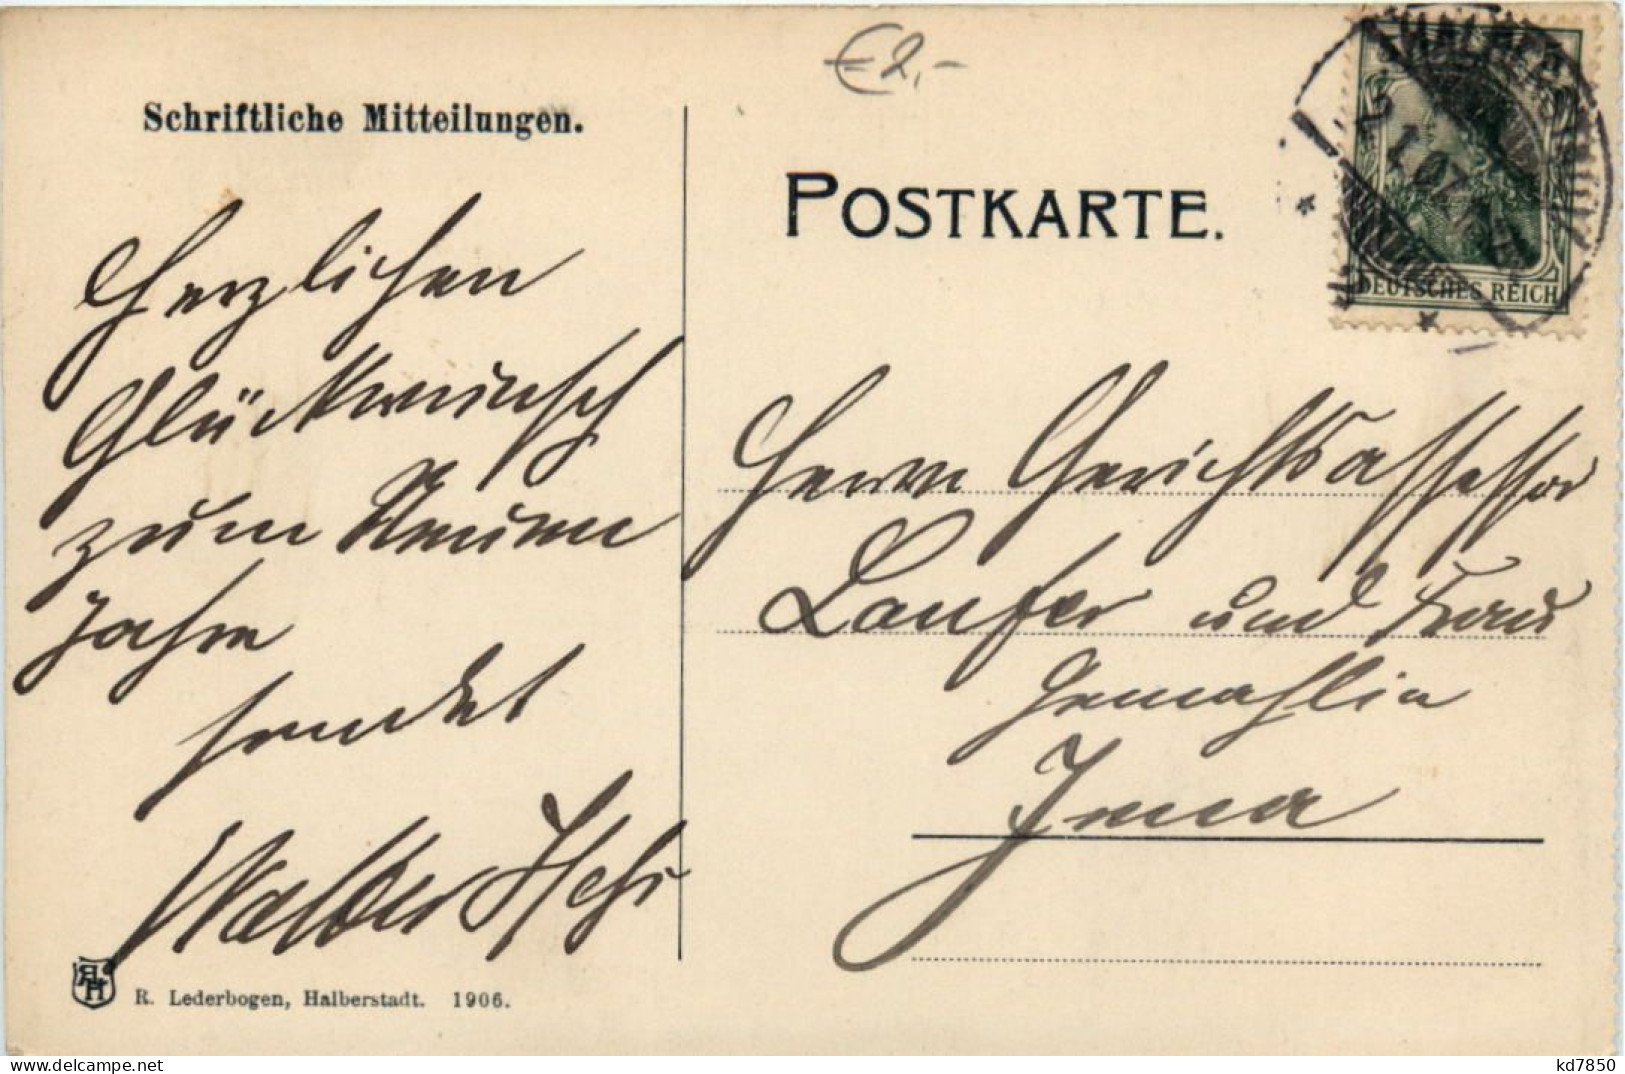 €2,-
Schriftliche Mitteilungen.
POSTKARTE.
DEUTSCHES REICH
2 1 07
Herzlichen
Glückwunsch
zum Neuen
Jahre
sendet
Walter
Herrn Gerichtsassessor
Laufer und Frau
Gemahlin
Jena
R. Lederbogen, Halberstadt. 1906.
kd7850